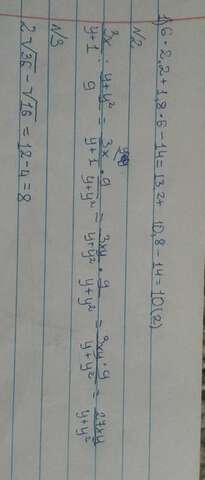 1) 6 · 2,2 + 1,8 · 6 - 14 = 13,2 + 10,8 - 14 = 10 (2)
№2
3x/y+1 : y+y²/9 = 3x/y+1 · 9/y+y² = 3xy/y+y² · 9/y+y² = 3xy·9/y+y² = 27xy/y+y²
№3
2√36 - √16 = 12 - 4 = 8